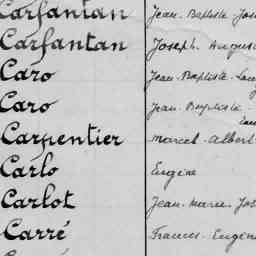 Carfantan Jean-Baptiste Jos
Carfantan Joseph Augus
Caro Jean-Baptiste
Caro Jean-Baptiste
Carpentier Marcel-Albert
Carlo Eugène
Carlot Jean-Marie-Jos
Carré Francis-Eugèn